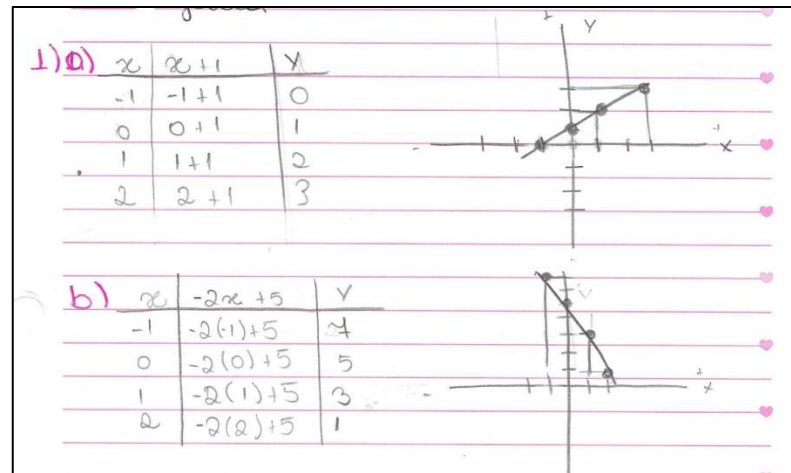 1)a) x | x+1 | Y
-1 | -1+1 | 0
0 | 0+1 | 1
1 | 1+1 | 2
2 | 2+1 | 3
Y
- + x
b) x | -2x+5 | Y
-1 | -2(-1)+5 | 7
0 | -2(0)+5 | 5
1 | -2(1)+5 | 3
2 | -2(2)+5 | 1
- + x